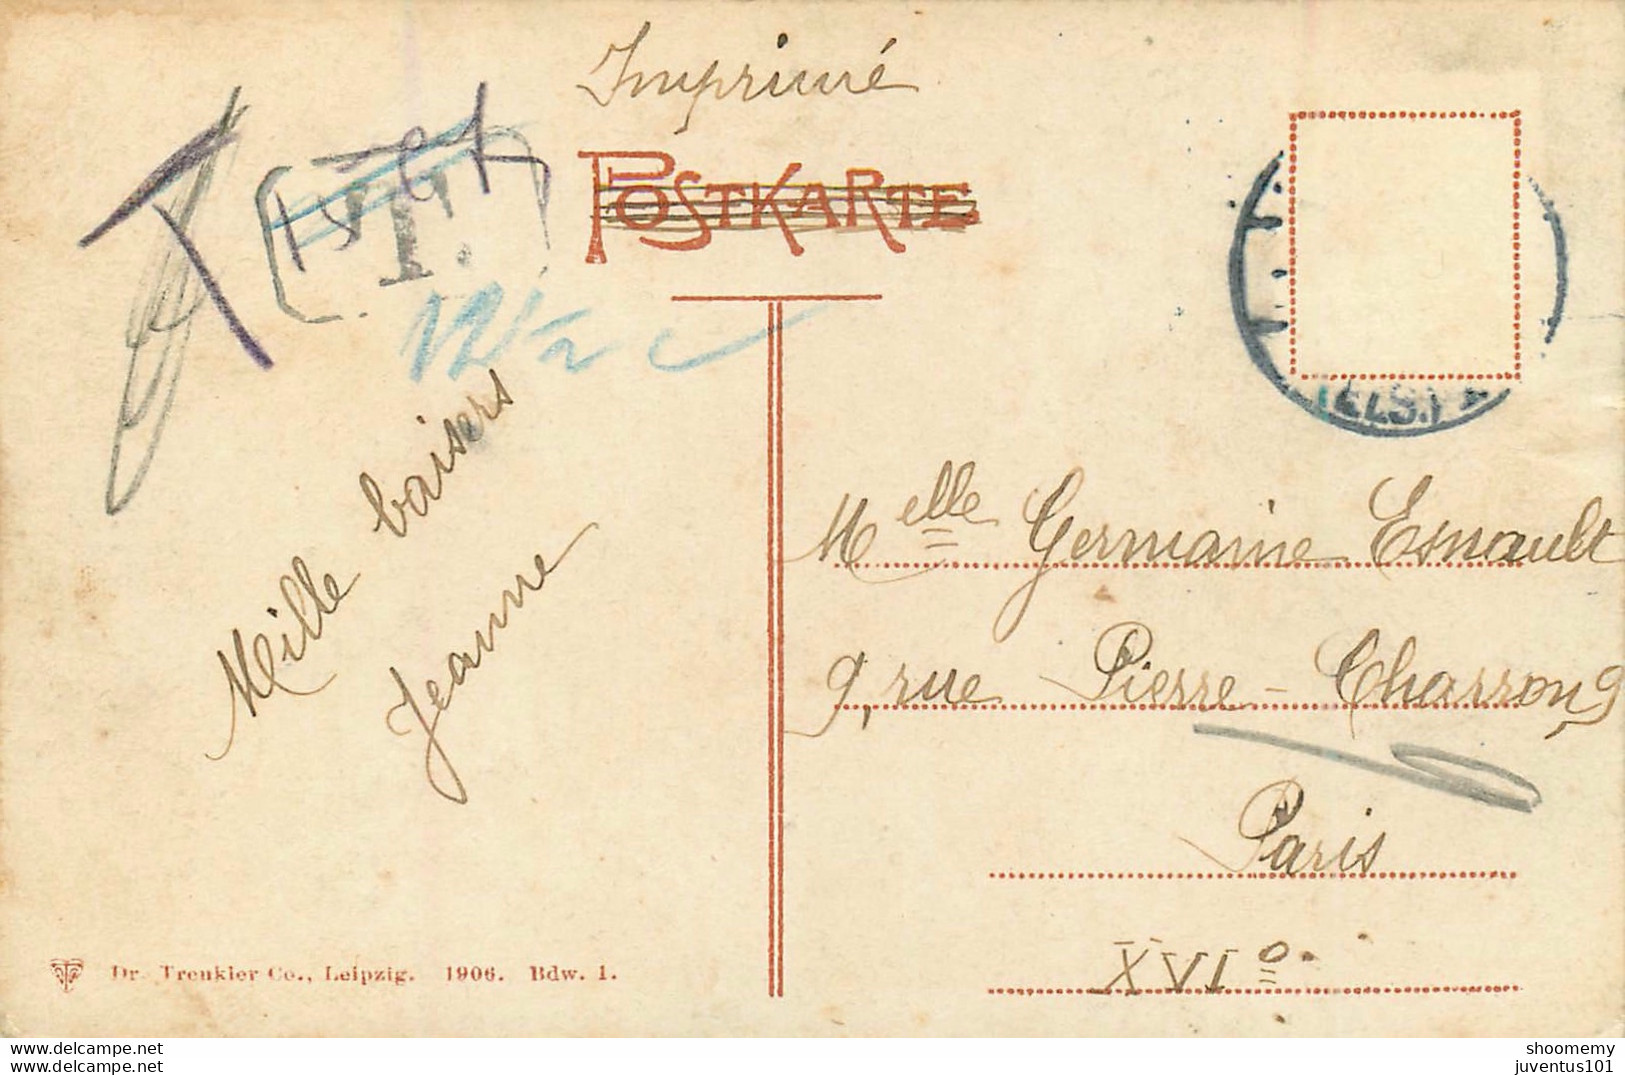 Imprimé
POSTKARTE
T
T.
12½ c
Mille baisers
Jeanne
Melle Germaine Esnault
9, rue Pierre-Charron, 9
Paris
XVIo.
Dr. Trenkler Co., Leipzig. 1906. Bdw. 1.
(ELS.)
www.delcampe.net
shoomemy
juventus101